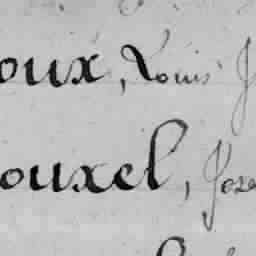 oux, Louis J
ouxel, Jose